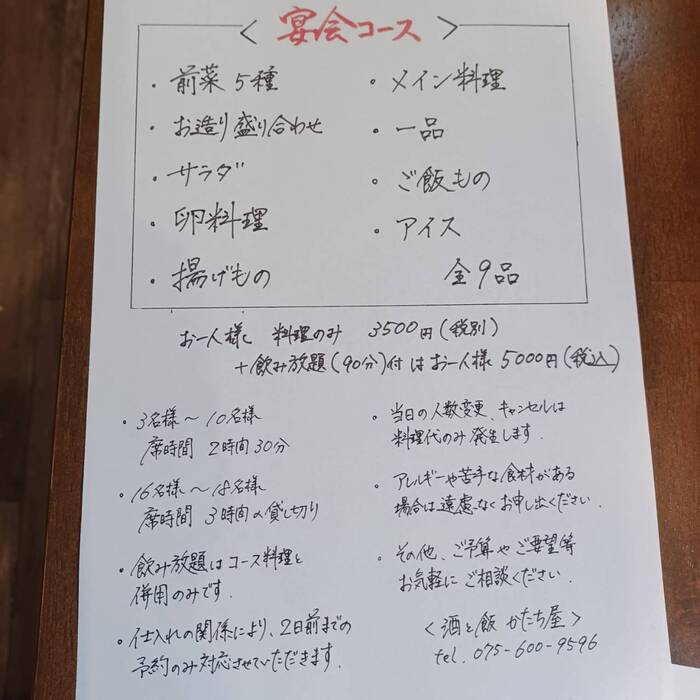 <宴会コース>
・前菜5種
・お造り盛り合わせ
・サラダ
・卵料理
・揚げもの
・メイン料理
・一品
・ご飯もの
・アイス
全9品
お一人様 料理のみ 3500円(税別)
+飲み放題(90分)付はお一人様 5000円(税込)
・3名様〜10名様
席時間 2時間30分
・16名様〜18名様
席時間 3時間の貸し切り
・飲み放題はコース料理と
併用のみです.
・仕入れの関係により、2日前までの
予約のみ対応させていただきます.
・当日の人数変更、キャンセルは
料理代のみ発生します.
・アレルギーや苦手な食材がある
場合は遠慮なくお申し出ください.
・その他、ご予算やご要望等
お気軽にご相談ください.
<酒と飯 かたち屋>
tel. 075-600-9596